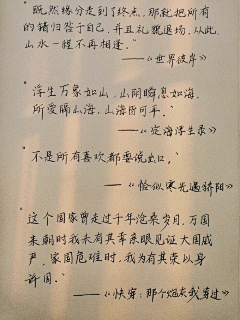 "既然缘分走到了终点，那就把所有
的错归咎于自己，并且礼貌退场，从此
山水一程不再相逢。"
——《世界彼岸》
"浮生万象如山，山阴瞬息如海，
所爱隔山海，山海皆可平。"
——《定海浮生录》
"不是所有喜欢都要说出口，"
——《恰似寒光遇骄阳》
"这个国家曾走过千年沧桑岁月，万国
来朝时我未有其幸亲眼见证大国威
严，家国危难时，我为有其荣以身
许国。"
——《快穿：那个炮灰我罩过》